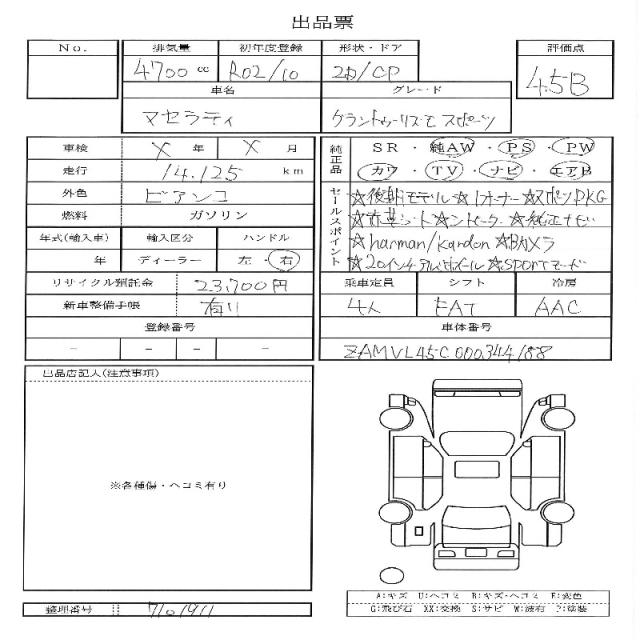 出品票
No. 排気量 初年度登録 形状・ドア 評価点
4700 cc R02/10 2D/CP 4.5B
車名 グレード
マセラティ グラントゥーリズモ スポーツ
車検 X 年 X 月
走行 14.125 km
外色 ビアンコ
燃料 ガソリン
年式(輸入車) 輸入区分 ハンドル
年 ディーラー 左・右
リサイクル預託金 23,700円
新車整備手帳 有り
登録番号
- - - -
純正品
SR・純AW・PS・PW
カワ・TV・ナビ・エアB
セールスポイント
☆後期モデル☆1オーナー☆スポーツPKG
☆赤革シート☆シートヒーター☆純正ナビ
☆harman/kardon☆Bカメラ
☆20インチアルミホイール☆SPORTモード
乗車定員 シフト 冷房
4人 FAT AAC
車体番号
ZAMVL45C000344188
出品店記入(注意事項)
※各種傷・ヘコミ有り
整理番号 7101911
A:キズ U:ヘコミ B:キズ・ヘコミ E:変色
G:飛び石 XX:交換 S:サビ W:波有 ?:塗装